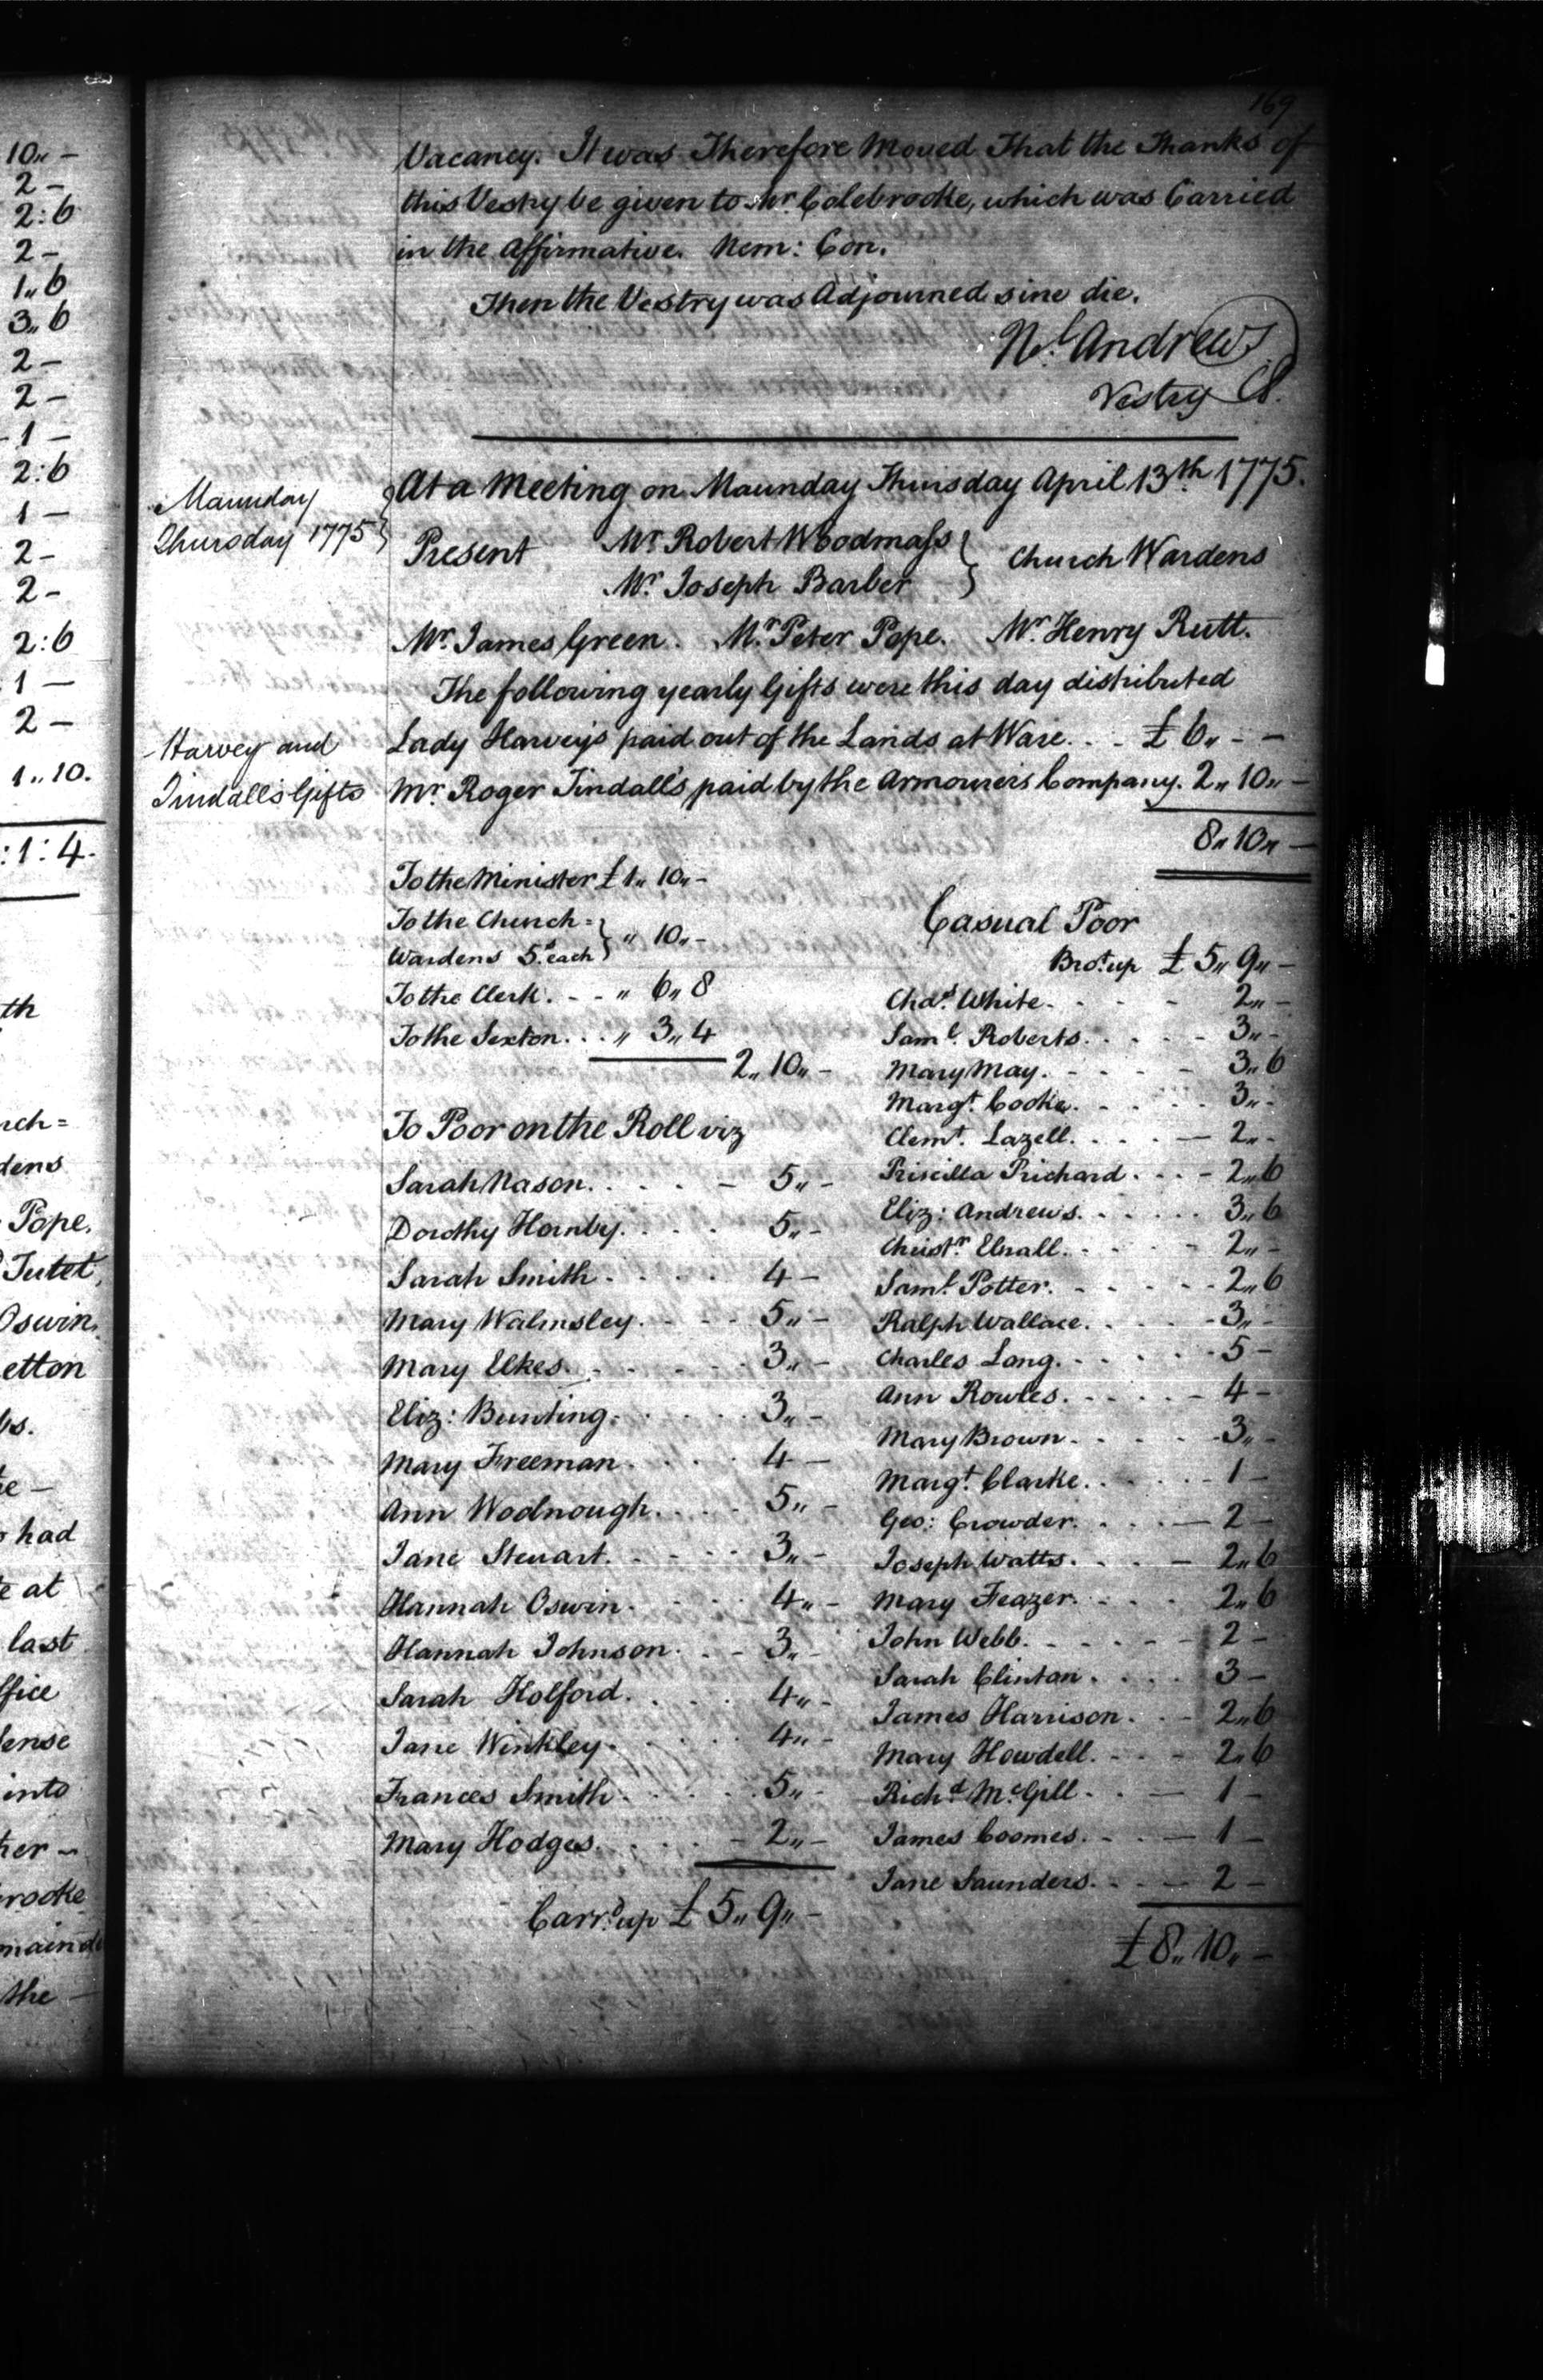 10„ -
2 -
2:6
2 -
1„6
3„6
2 -
2 -
- 1 -
2:6
1 -
2 -
2 -
2:6
1 -
2 -
1„10.
:1:4.
th
rch=
dens
Pope.
Tutet,
Oswin.
etton
had
e at
last
ffice
fense
into
her ~
rooke
maind
the -
169
Vacancy. It was Therefore Moved That the Thanks of
this Vestry be given to Mr. Colebrooke, which was Carried
in the Affirmative. Nem: Con.
Then the Vestry was Adjourned sine die.
Nl. Andrews
Vestry Cl.
Maunday
Thursday 1775
At a Meeting on Maunday Thursday April 13th. 1775.
Present Mr. Robert Woodmass
Mr. Joseph Barber } Church Wardens
Mr. James Green. Mr. Peter Pope. Mr. Henry Rutt.
The following yearly Gifts were this day distributed
Harvey and
Tindall's Gifts
Lady Harvey's paid out of the Lands at Ware. . - £ 6„ - -
Mr. Roger Tindall's paid by the Armourers Company. 2„ 10„ -
8„ 10„ -
To the Minister £ 1„ 10„ -
To the Church=
Wardens 5s. each } „ 10„ -
To the Clerk. - - „ 6„ 8
To the Sexton. . . „ 3„ 4
2„ 10„ -
To Poor on the Roll viz
Sarah Nason. . . . - 5„ -
Dorothy Hornby. . . . 5„ -
Sarah Smith. . . . 4 -
Mary Walmsley. - - - 5„ -
Mary Elkes. - - - - 3„ -
Eliz: Bunting. . . . . 3„ -
Mary Freeman. . . . 4 -
Ann Woolnough. . . . 5„ -
Jane Steuart. - - - - 3„ -
Hannah Oswin. - - - 4„ -
Hannah Johnson. . - 3„ -
Sarah Holford. . . . 4„ -
Jane Winkley. . . . 4„ -
Frances Smith. . . . 5„ -
Mary Hodges. . . . - 2„ -
Carrd. up £ 5„ 9„ -
Casual Poor
Brot. up £ 5„ 9„ -
Chas. White. - - - - 2„ -
Saml. Roberts. . . . - 3„ -
Mary May. - - - - 3„ 6
Margt. Cooke. - - - - 3„ -
Clemt. Lazell. . . . - 2„ -
Priscilla Prichard. . . - 2„ 6
Eliz: Andrews. . . . . 3„ 6
Christr. Elnall. - - - - 2„ -
Saml. Potter. - - - - 2„ 6
Ralph Wallace. . . . - 3„ -
Charles Long. - - - - 5 -
Ann Rowles. . . . - 4 -
Mary Brown. - - - - 3„ -
Margt. Clarke. . . . - 1 -
Geo: Crowder. . . . - 2 -
Joseph Watts. . . . - 2„ 6
Mary Feazer. . . . . 2„ 6
John Webb. - - - - 2 -
Sarah Clinton. . . . 3 -
James Harrison. - - 2„ 6
Mary Howdell. - - - 2„ 6
Richd. McGill. - - - 1 -
James Coomes. - - - 1 -
Jane Saunders. - - - 2 -
£ 8„ 10„ -